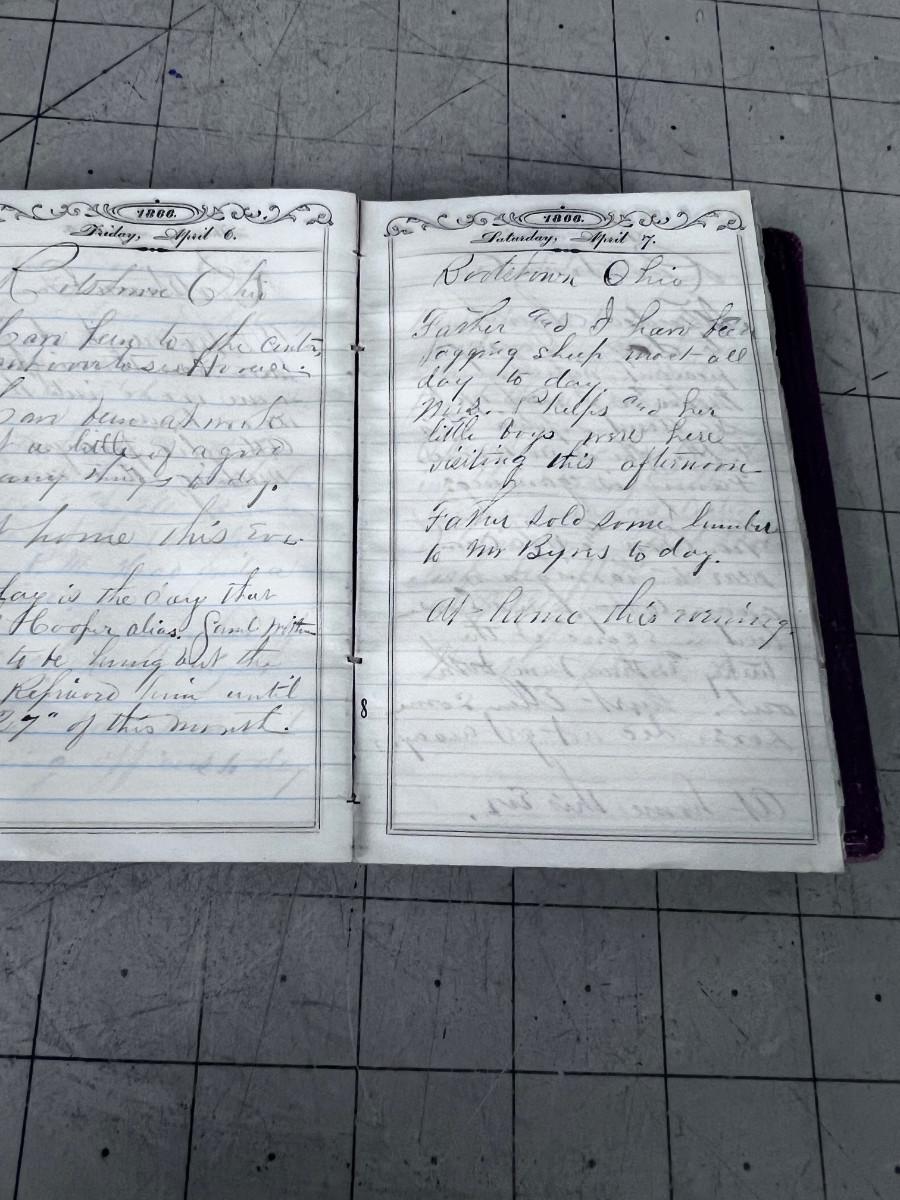 1866.
Friday, April 6.
Rootstown Ohio
been to the center
been at work
a little of a good
many things to day.
home this Eve.
day is the day that
Hooper alias
to be hung but the
Reprieved him until
27" of this month.
1866.
Saturday, April 7.
Rootstown Ohio
Father and I have been
tagging sheep most all
day to day.
Mrs. Phelps and her
little boys were here
visiting this afternoon
Father sold some lumber
to Mr Byrns to day.
At home this evening.
8